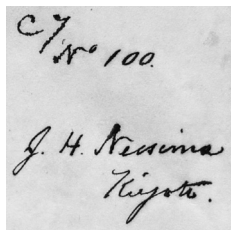 No 100.
J. H. Neesima
Kiyoto.